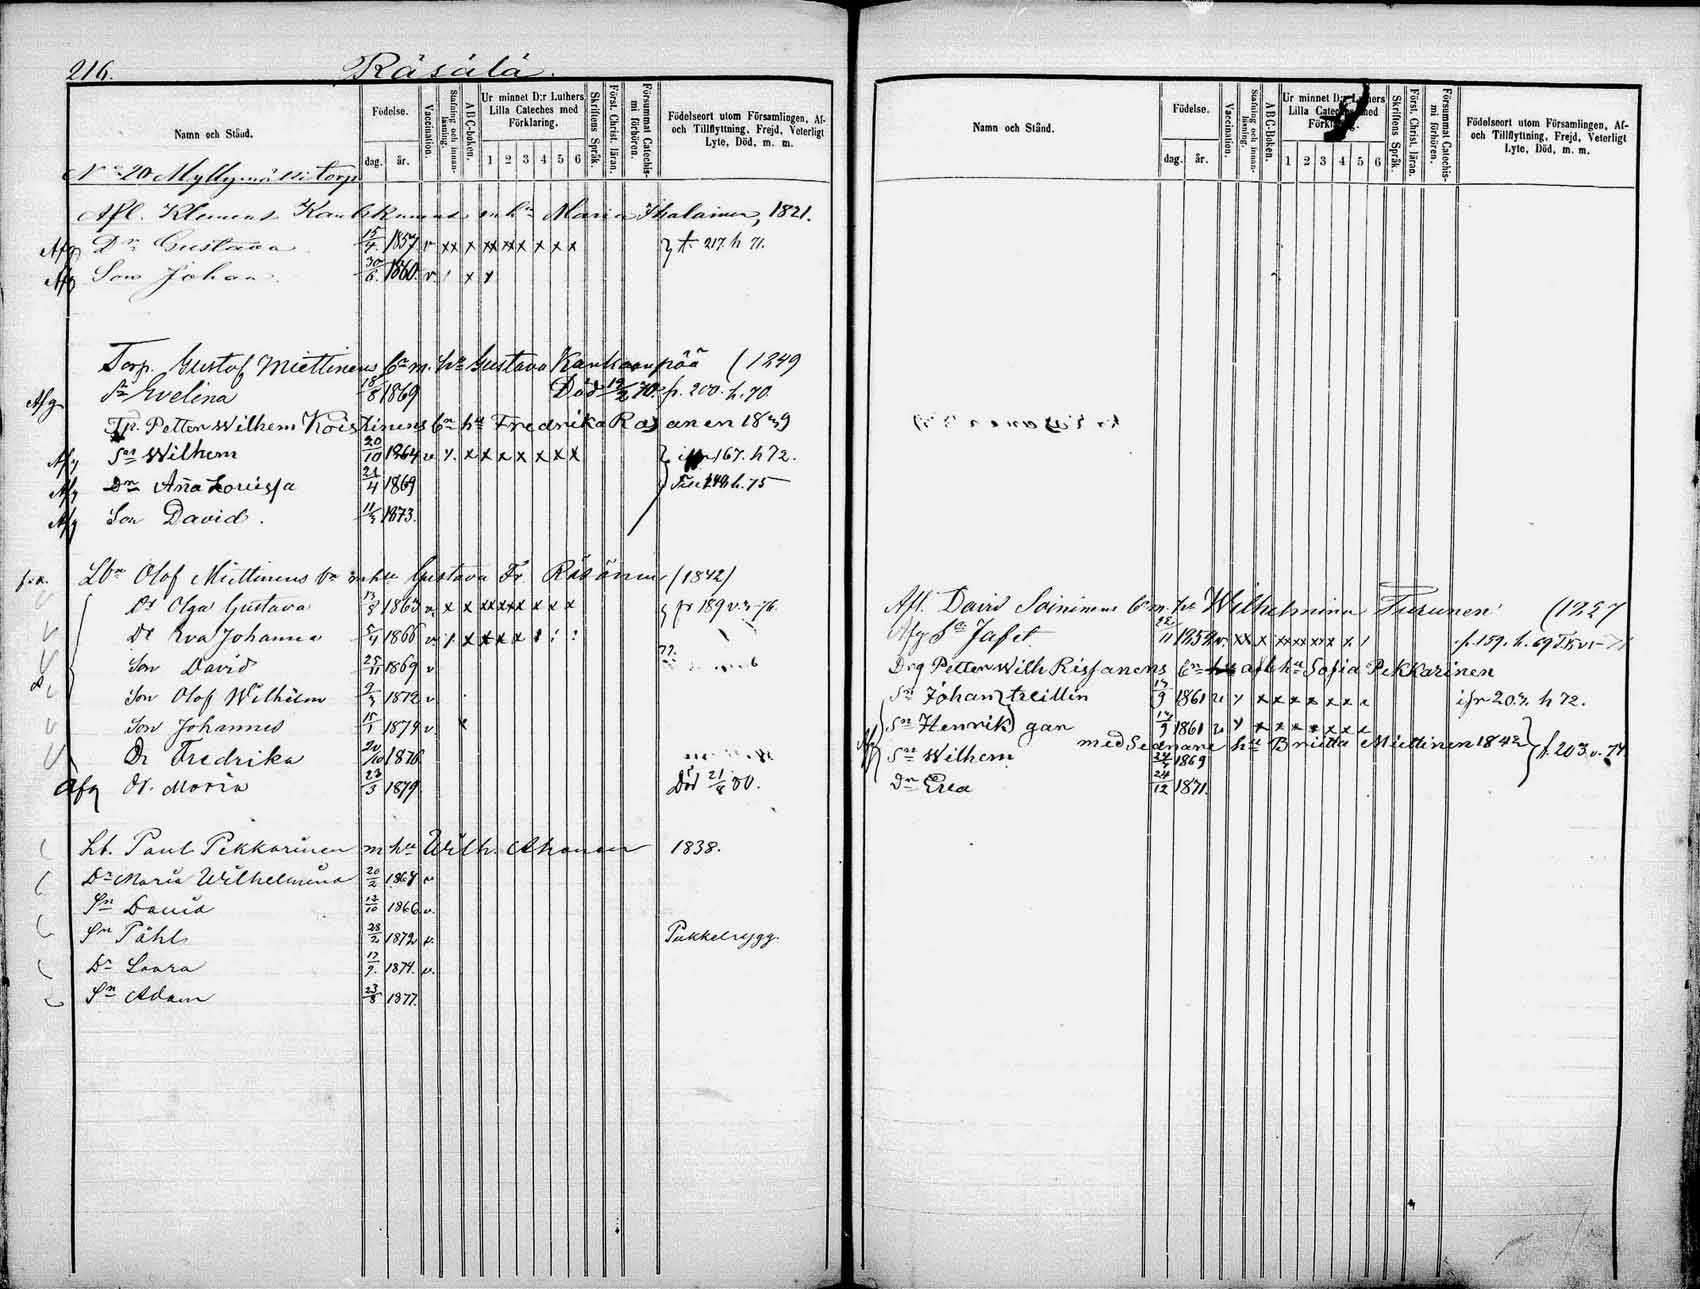 216. Räsälä.
Namn och Stånd.
Födelse.
dag. år.
Vaccination.
Stafning och innan-läsning.
ABC-boken.
Ur minnet D:r Luthers Lilla Cateches med Förklaring.
1 2 3 4 5 6
Skriftens Språk.
Först. Christ. läran.
Försummat Catechis-mi förhören.
Födelseort utom Församlingen, Af- och Tillflyttning, Frejd, Veterligt Lyte, Död, m. m.
No 20 Myllymäki torp
Afl. Klement hu Maria Ihalainen, 1821.
Afg Dr Gustava 15/4 1857 v xx x xx xx x x x x } f. 217. h 71.
Afg Son Johan 30/6 1860. v. x x
Torp. Gustof Miettinens bn m. hu Gustava Kankaanpää (1849
Afg Dr Evelina 18/8 1869 Död 12/2 70. p. 200. h. 70.
Tp. Petter Wilhem Koistinens bn hu Fredrika Räsänen 1839
Afg Sn Wilhem 20/10 1864 v x x x x x x x x } 167. h 72.
Afg Dn Aña Lovissa 21/4 1869 h. 75
Afg Son David. 11/3 1873.
Lbn Olof Miettinens bn m hu Gustava Fr. Räsänen (1842)
Dr Olga Gustava 13/8 1863 v x x xx xx x x x x } fr 189 v. 76.
Dr Eva Johanna 5/4 1866 v. x x x x
Son David 25/11 1869 v
Son Olof Wilhelm 9/3 1872 v
Son Johannes 15/1 1874 v. x
Dr Fredrika 20/10 1876
Afg Dr. Maria 23/3 1879 Död 21/8 80.
Lb. Paul Pekkarinen m hu Wilh. Ahonen 1838.
Dr Maria Wilhelmina 20/2 1864 v
Sn David 12/10 1866 v.
Sn Påhl 28/2 1872 v. Pukkelrygg.
Dr Laura 17/9. 1874. v.
Sn Adam 23/8 1877.
Namn och Stånd.
Födelse.
dag. år.
Vaccination.
Stafning och innan-läsning.
ABC-boken.
Ur minnet D:r Luthers Lilla Cateches med Förklaring.
1 2 3 4 5 6
Skriftens Språk.
Först. Christ. läran.
Försummat Catechis-mi förhören.
Födelseort utom Församlingen, Af- och Tillflyttning, Frejd, Veterligt Lyte, Död, m. m.
Afl. David Soininens bn m. hu Wilhelmina Turunen (1827
Afg Sn Jafet 22/11 1859 v. xx x xx xx x x x p. 159. h. 69
Drg Petter Wilh Rissanens bn afl hu Sofia Pekkarinen
Sn Johan } tvillin 17/9 1861 v x x x x x x x h 72.
Sn Henrik } gar 17/9 1861 v x x x x x x x
med Sednare hu Britta Miettinen 1842
Sn Wilhem 1869 } f. 203 v. 74.
Dn Eva 24/12 1871.